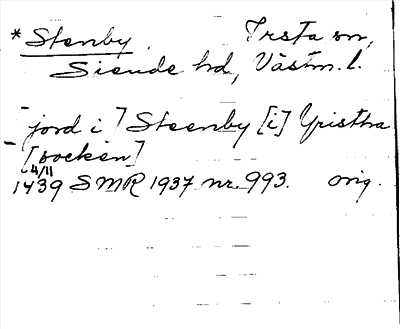 * Stenby. Irsta sn,
Siende hd, Västm. l.
[jord i] Steenby [i] Yristha
[socken]
4/11
1439 SMR 1937 nr. 993. orig.